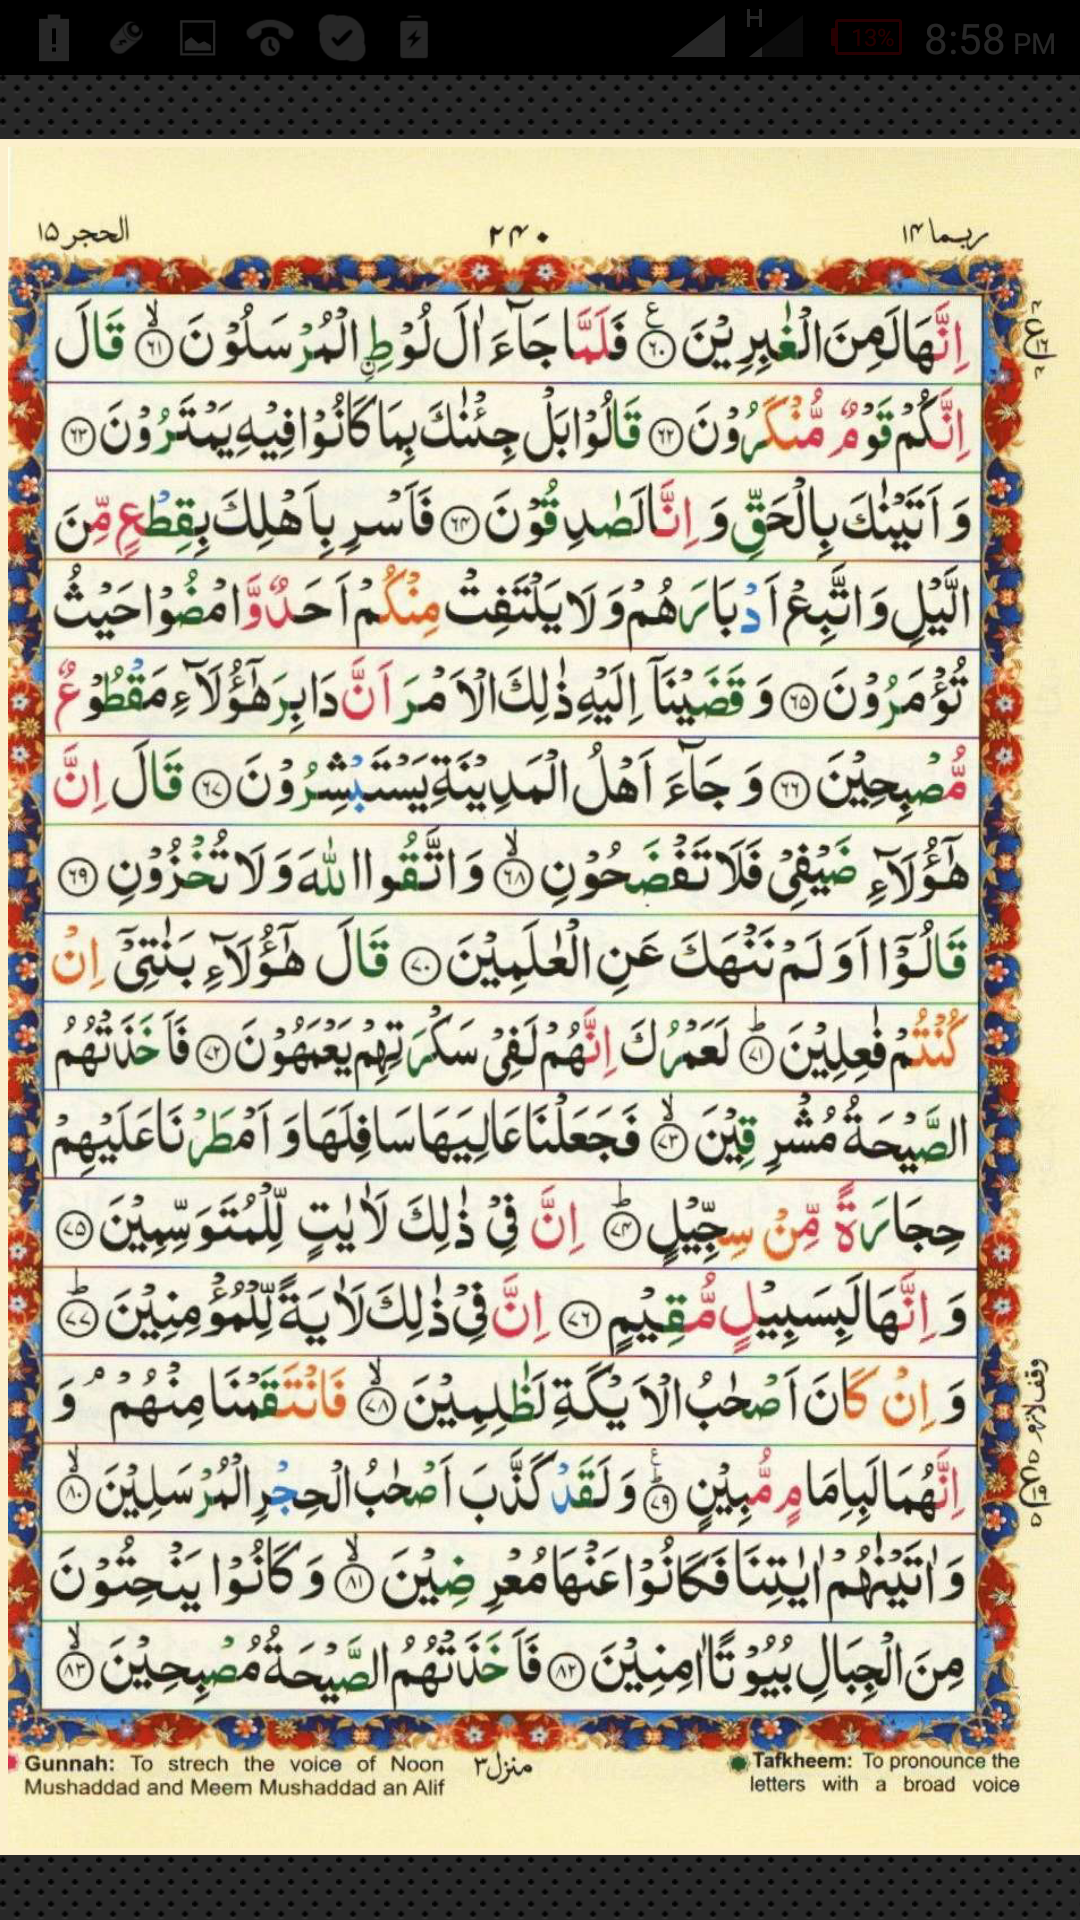 H 13% 8:58 PM
ربما ١٤ ٢٤٠ الحجر ١٥
اِنَّهَا لَمِنَ الْغٰبِرِيْنَ ۟ۧ ٦٠ فَلَمَّا جَآءَ اٰلَ لُوْطِ ِ۟الْمُرْسَلُوْنَ ۙ ٦١ قَالَ
اِنَّكُمْ قَوْمٌ مُّنْكَرُوْنَ ٦٢ قَالُوْا بَلْ جِئْنٰكَ بِمَا كَانُوْا فِيْهِ يَمْتَرُوْنَ ٦٣
وَ اَتَيْنٰكَ بِالْحَقِّ وَ اِنَّا لَصٰدِقُوْنَ ٦٤ فَاَسْرِ بِاَهْلِكَ بِقِطْعٍ مِّنَ
الَّيْلِ وَ اتَّبِعْ اَدْبَارَهُمْ وَ لَا يَلْتَفِتْ مِنْكُمْ اَحَدٌ وَّ امْضُوْا حَيْثُ
تُؤْمَرُوْنَ ٦٥ وَ قَضَيْنَاۤ اِلَيْهِ ذٰلِكَ الْاَمْرَ اَنَّ دَابِرَ هٰۤؤُلَآءِ مَقْطُوْعٌ
مُّصْبِحِيْنَ ٦٦ وَ جَآءَ اَهْلُ الْمَدِيْنَةِ يَسْتَبْشِرُوْنَ ٦٧ قَالَ اِنَّ
هٰۤؤُلَآءِ ضَيْفِيْ فَلَا تَفْضَحُوْنِ ۙ ٦٨ وَ اتَّقُوا اللّٰهَ وَ لَا تُخْزُوْنِ ٦٩
قَالُوْۤا اَوَ لَمْ نَنْهَكَ عَنِ الْعٰلَمِيْنَ ٧٠ قَالَ هٰۤؤُلَآءِ بَنٰتِيْۤ اِنْ
كُنْتُمْ فٰعِلِيْنَ ؕ ٧١ لَعَمْرُكَ اِنَّهُمْ لَفِيْ سَكْرَتِهِمْ يَعْمَهُوْنَ ٧٢ فَاَخَذَتْهُمُ
الصَّيْحَةُ مُشْرِقِيْنَ ۙ ٧٣ فَجَعَلْنَا عَالِيَهَا سَافِلَهَا وَ اَمْطَرْنَا عَلَيْهِمْ
حِجَارَةً مِّنْ سِجِّيْلٍ ؕ ٧٤ اِنَّ فِيْ ذٰلِكَ لَاٰيٰتٍ لِّلْمُتَوَسِّمِيْنَ ٧٥
وَ اِنَّهَا لَبِسَبِيْلٍ مُّقِيْمٍ ٧٦ اِنَّ فِيْ ذٰلِكَ لَاٰيَةً لِّلْمُؤْمِنِيْنَ ؕ ٧٧
وَ اِنْ كَانَ اَصْحٰبُ الْاَيْكَةِ لَظٰلِمِيْنَ ۙ ٧٨ فَانْتَقَمْنَا مِنْهُمْ ۘ وَ
وقف لازم
اِنَّهُمَا لَبِاِمَامٍ مُّبِيْنٍ ؕ۠ ٧٩ وَ لَقَدْ كَذَّبَ اَصْحٰبُ الْحِجْرِ الْمُرْسَلِيْنَ ۙ ٨٠
وَ اٰتَيْنٰهُمْ اٰيٰتِنَا فَكَانُوْا عَنْهَا مُعْرِضِيْنَ ۙ ٨١ وَ كَانُوْا يَنْحِتُوْنَ
مِنَ الْجِبَالِ بُيُوْتًا اٰمِنِيْنَ ٨٢ فَاَخَذَتْهُمُ الصَّيْحَةُ مُصْبِحِيْنَ ۙ ٨٣
Gunnah: To strech the voice of Noon
Mushaddad and Meem Mushaddad an Alif
منزل ٣
Tafkheem: To pronounce the
letters with a broad voice